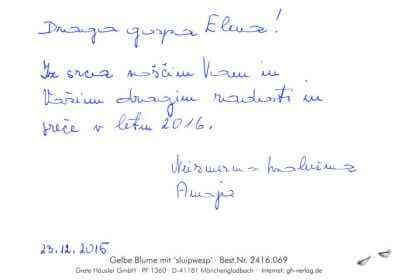 Draga gospa Elena!
Iz srca voščim Vam in
Vašim dragim radosti in
sreče v letu 2016.
Neizmerno hvaležna
Amajo
23.12.2015
Gelbe Blume mit 'sluipwesp' · Best.Nr. 2416.069
Grete Häusler GmbH · PF 1360 · D-41181 Mönchengladbach · Internet: gh-verlag.de